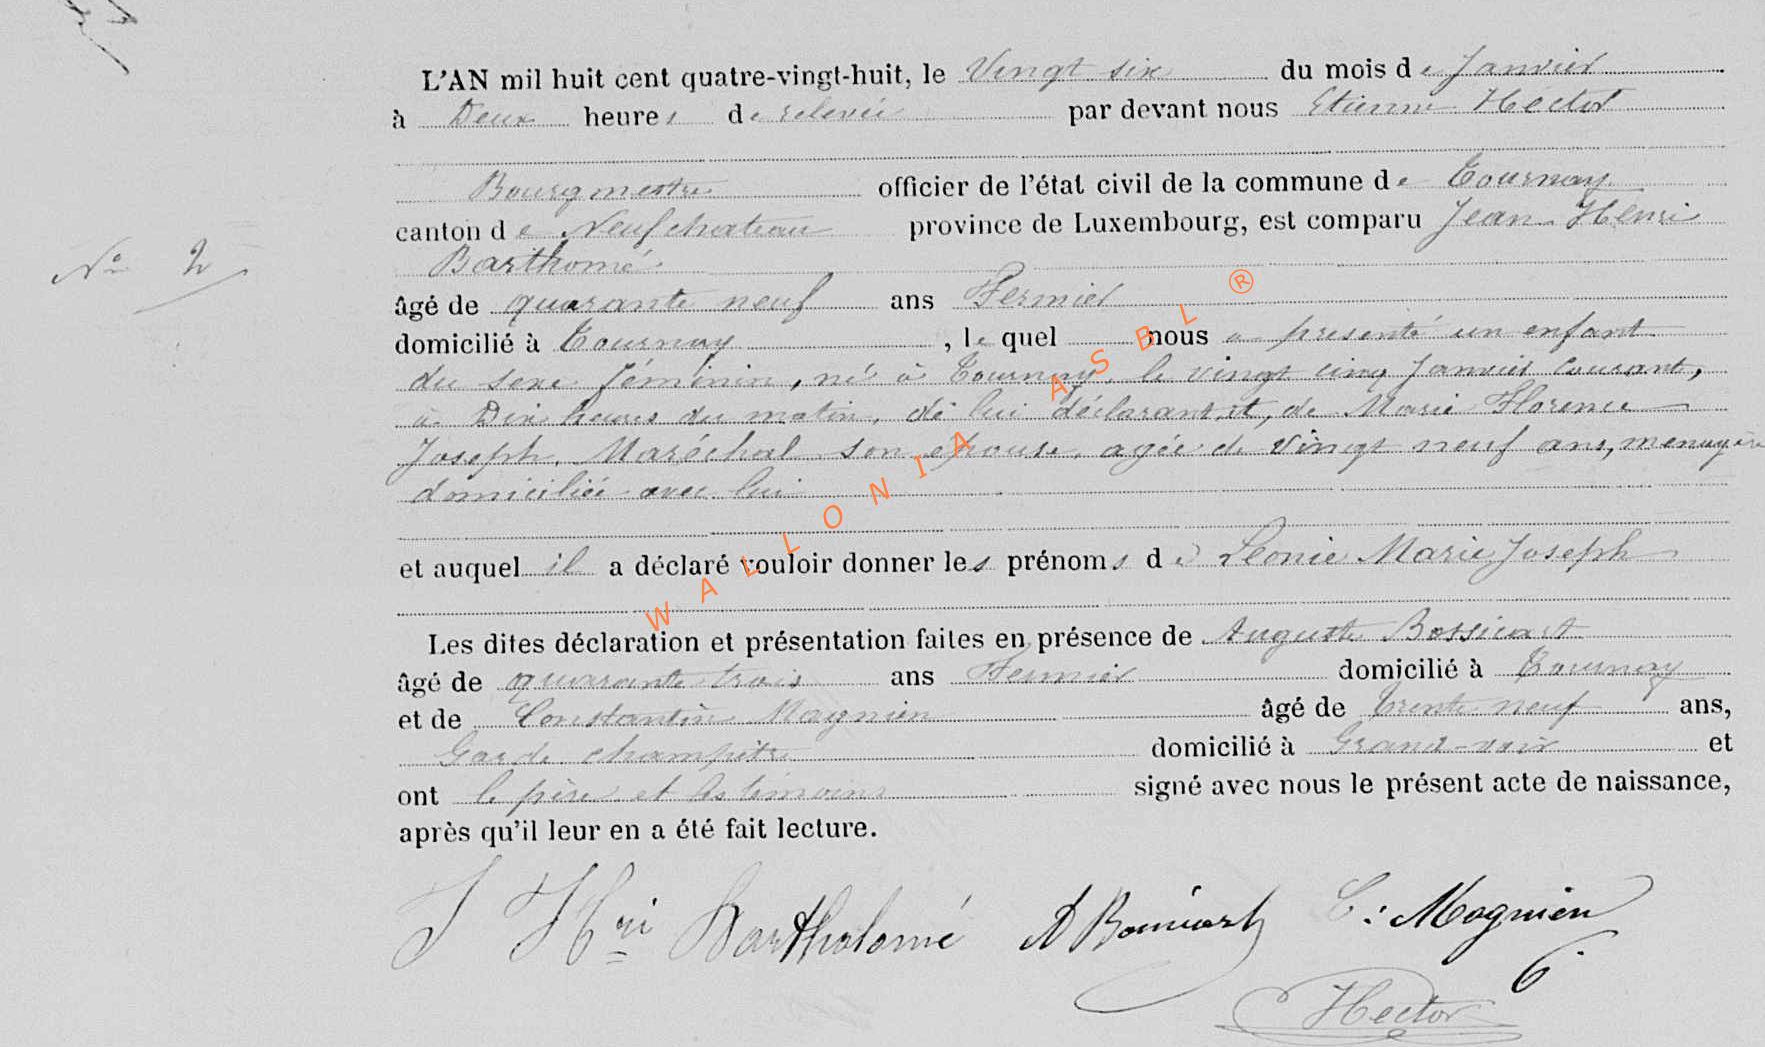 L'AN mil huit cent quatre-vingt-huit, le Vingt six du mois de Janvier
à Deux heures de relevée par devant nous Etienne Hector
Bourgmestre officier de l'état civil de la commune de Tournay
canton de Neufchateau province de Luxembourg, est comparu Jean Henri
N° 2
Barthomé
âgé de quarante neuf ans Fermier
domicilié à Tournay, lequel nous a presenté un enfant
du sexe féminin, né à Tournay, le vingt cinq Janvier courant,
à Dix heures du matin, de lui déclarant, et, de Marie Florence
Joseph, Maréchal son épouse, agée de Vingt neuf ans, menagère
domiciliée avec lui
et auquel il a déclaré vouloir donner les prénoms de Léonie Marie Joseph
Les dites déclaration et présentation faites en présence de Auguste Bossicart
âgé de quarante trois ans Fermier domicilié à Tournay
et de Constantin Magnien âgé de Trente neuf ans,
Garde champêtre domicilié à Grand-voir et
ont le père et les témoins signé avec nous le présent acte de naissance,
après qu'il leur en a été fait lecture.
J Hri Bartholomé A Bossicart C: Magnien
Hector
WALLONIA ASBL ®